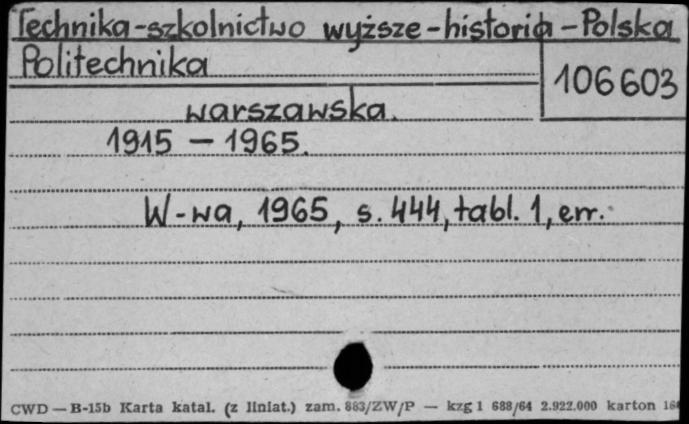 Technika-szkolnictwo wyższe-historia-Polska
Politechnika
106603
warszawska.
1915 – 1965.
W-wa, 1965, s. 444, tabl. 1, err.
CWD — B-15b Karta katal. (z liniat.) zam. 883/ZW/P — kzg 1 688/64 2.922.000 karton